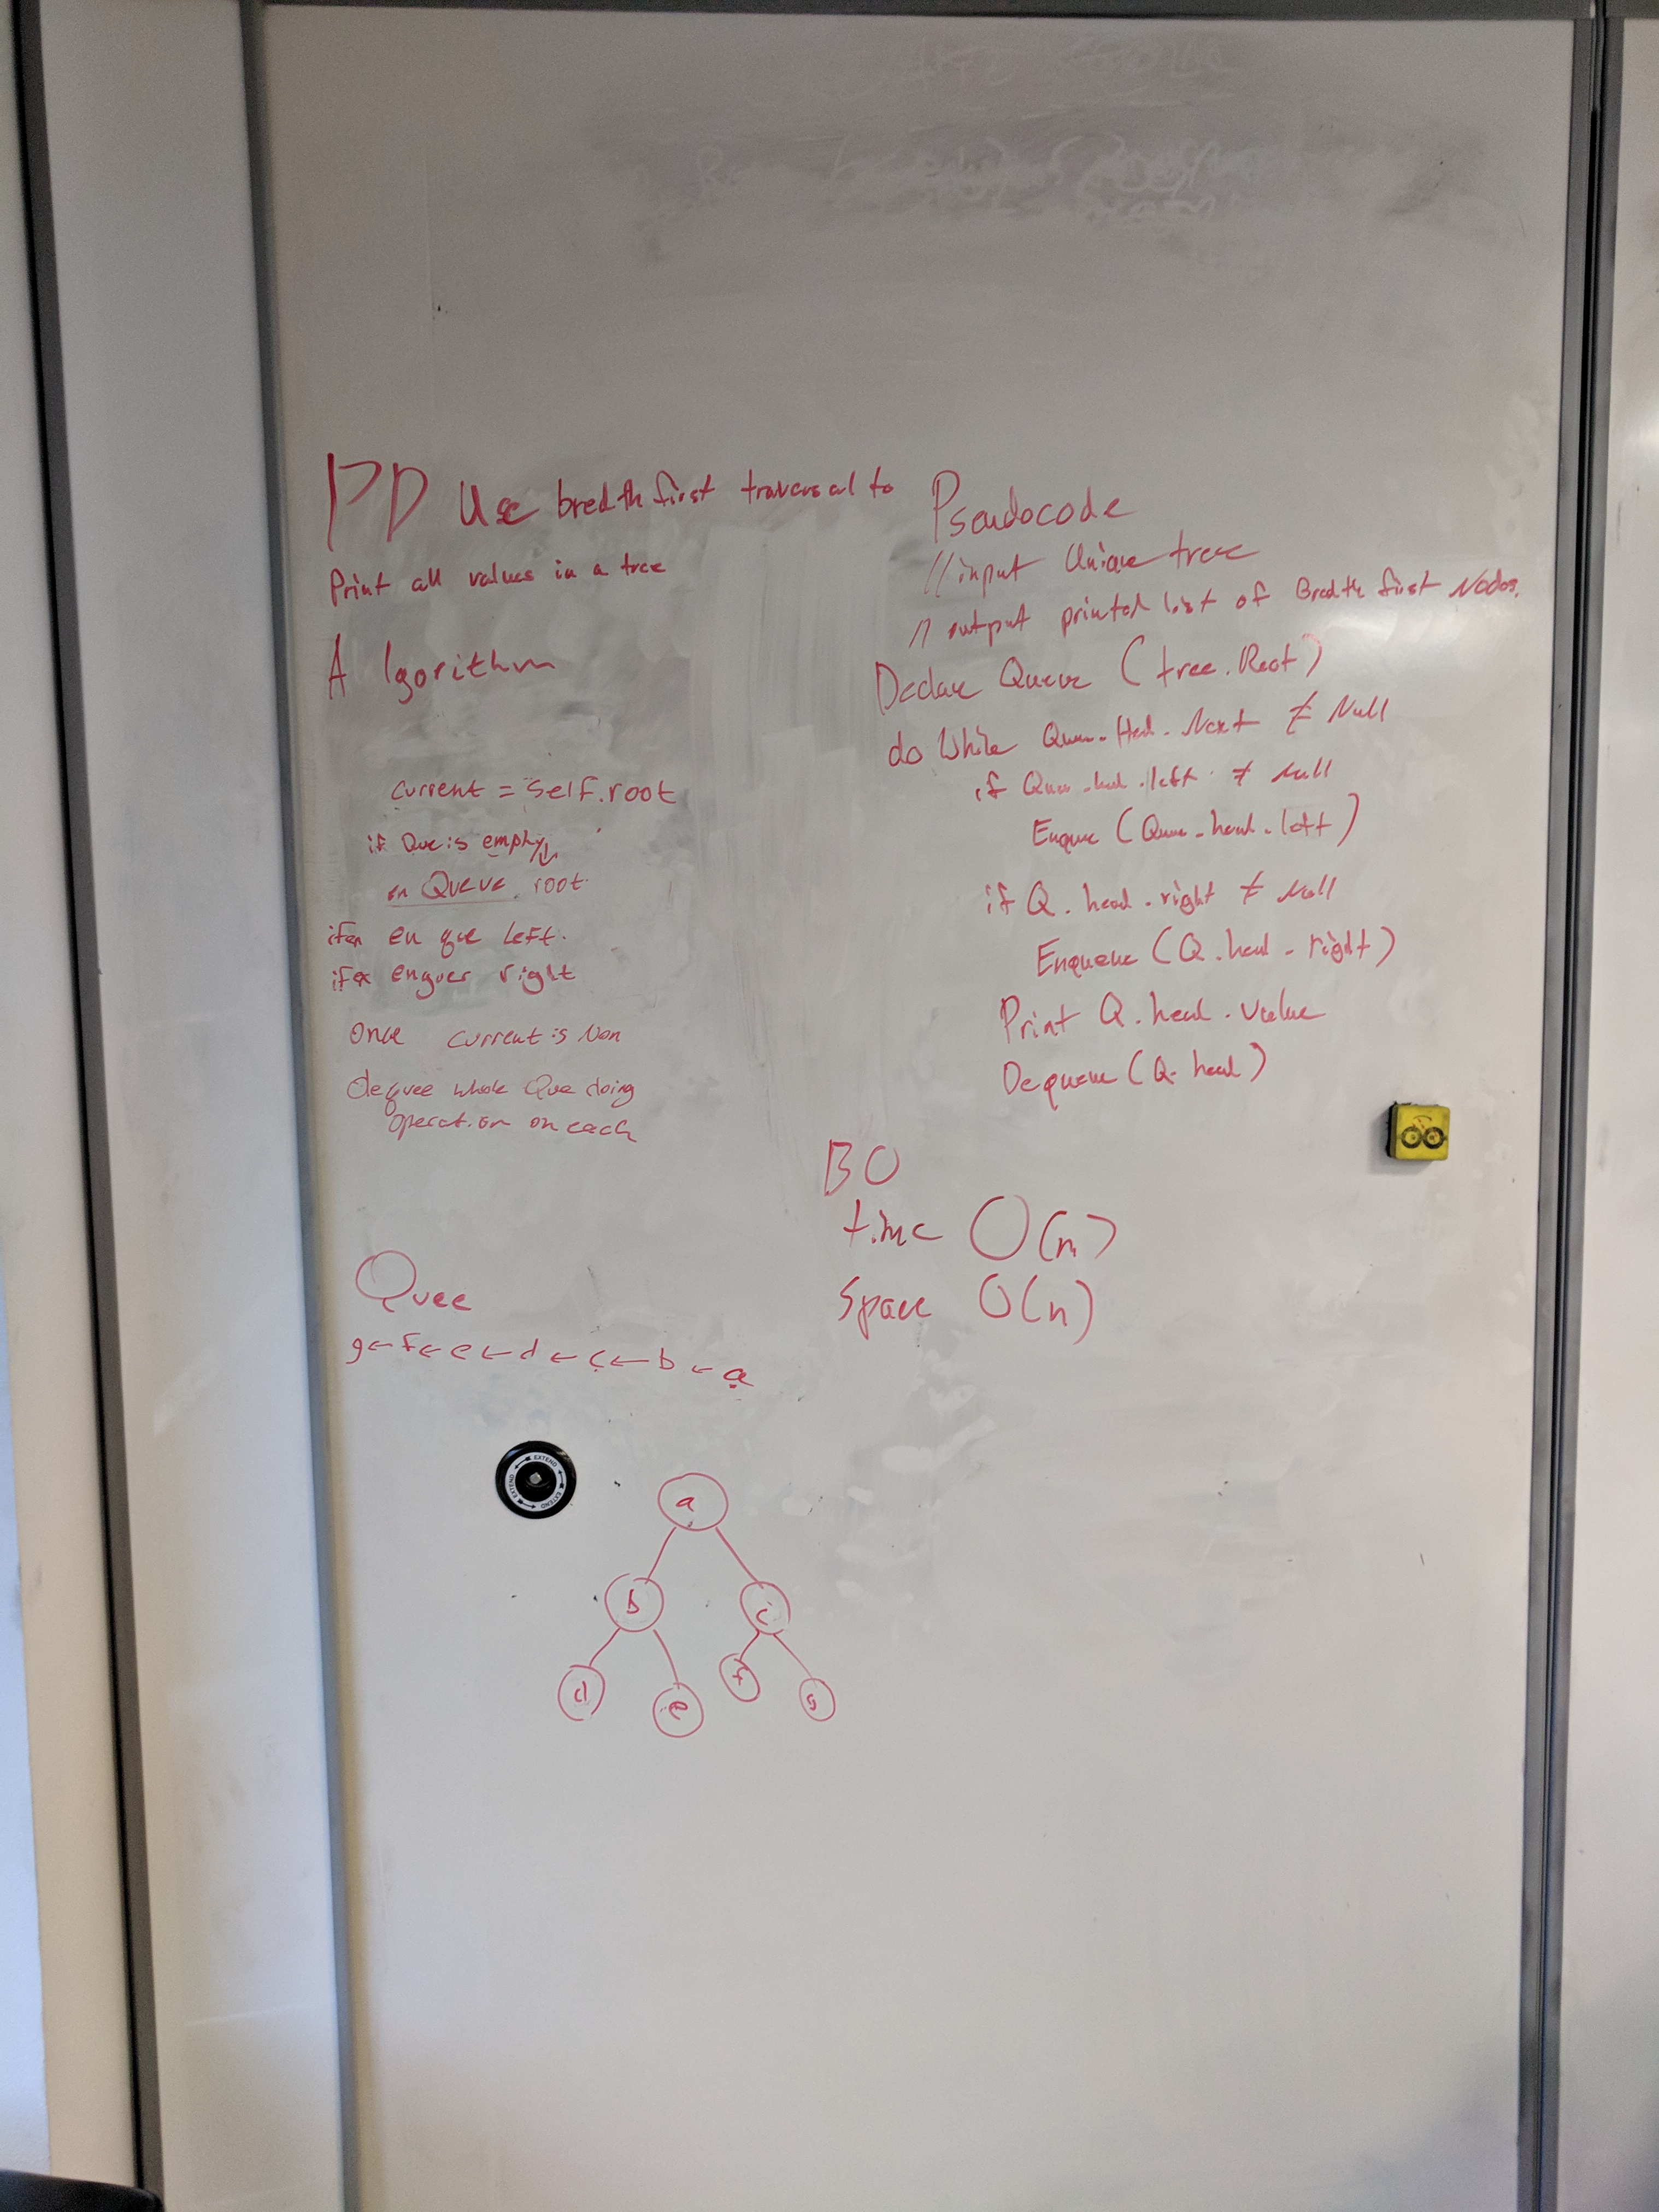 PD Use bredth first traversal to
Print all values in a tree
Algorithm
current = self.root
if Que is empty
en Queue root.
en que left.
enquee right
Once current is Non
dequee whole Que doing
operation on each
Quee
g ← f ← e ← d ← c ← b ← a
EXTEND EXTEND EXTEND
a
b c
d e f g
Pseudocode
// input Unique tree
// output printed list of Bredth first Nodes.
Declare Queue (tree.Root)
do While Queue.Head.Next ≠ Null
if Queue.head.left ≠ Null
Enque (Queue.head.left)
if Q.head.right ≠ Null
Enqueue (Q.head.right)
Print Q.head.value
Dequeue (Q.head)
BO
time O(n)
Space O(n)